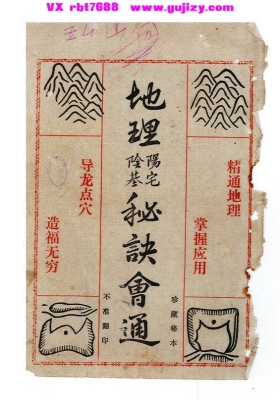 VX rbt7688 www.gujizy.com
地理陽宅陰基秘訣會通
精通地理
掌握应用
导龙点穴
造福无穷
珍藏秘本
不准翻印